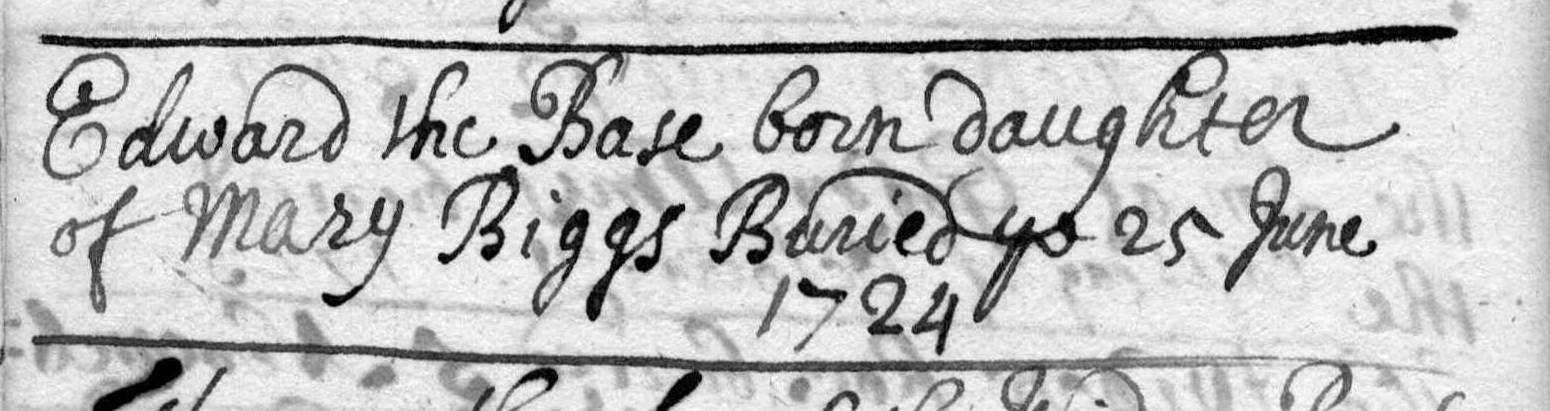 Edward the Base born daughter
of Mary Biggs Buried ye 25 June
1724